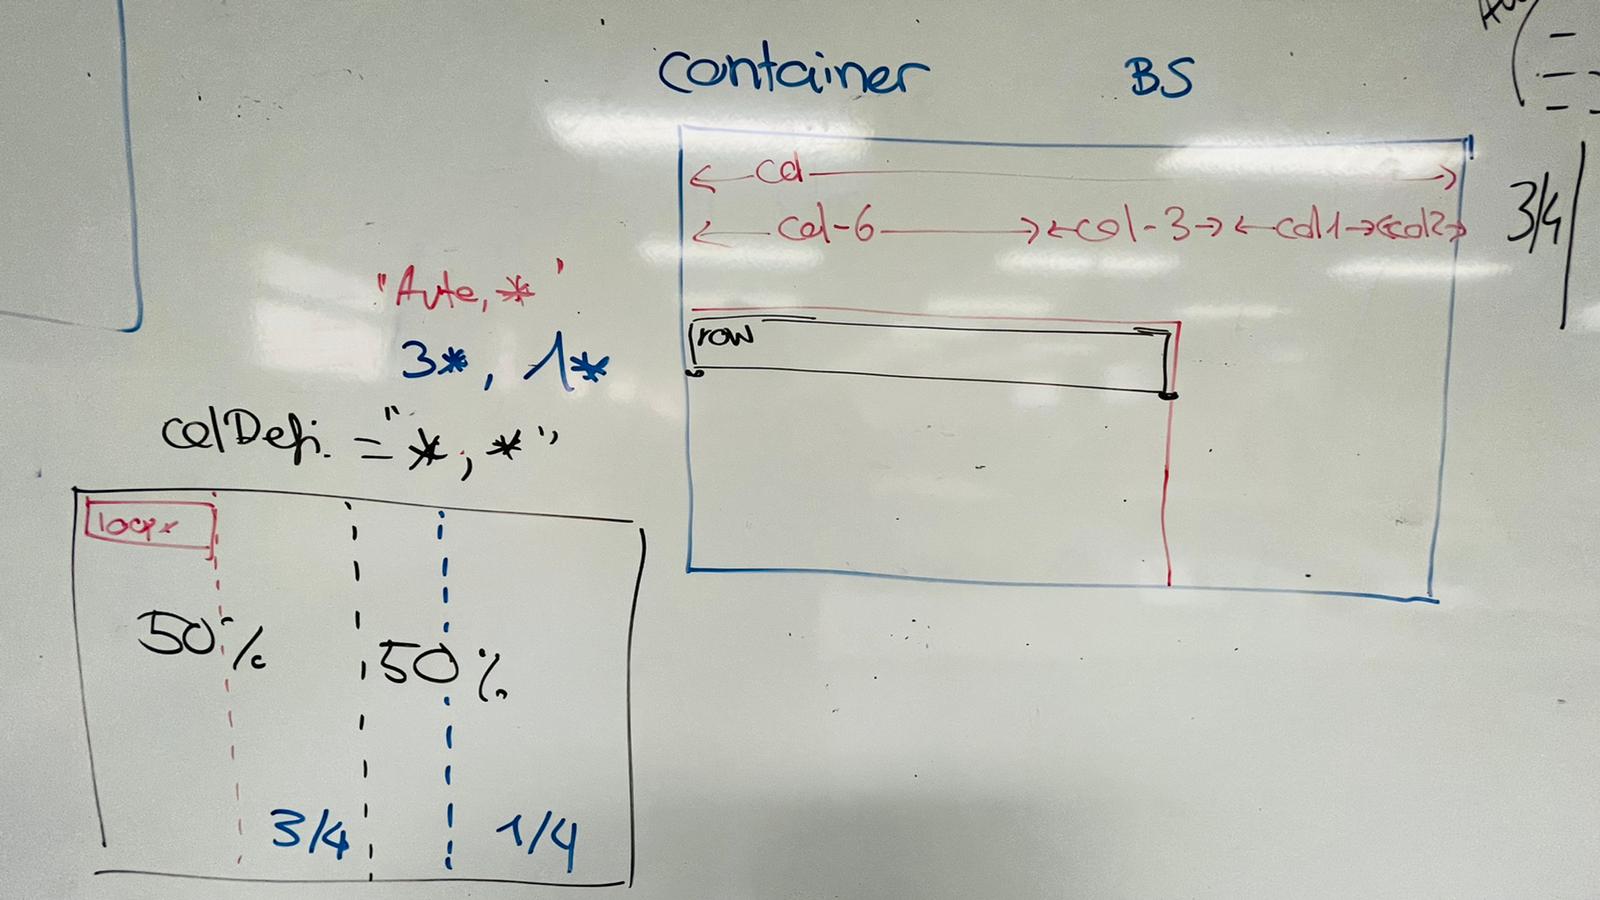 container BS
col
col-6 col-3 col1 col2
3/4
"Auto, *"
3*, 1*
row
colDefi. = "*, *"
100px
50% 50%
3/4 1/4